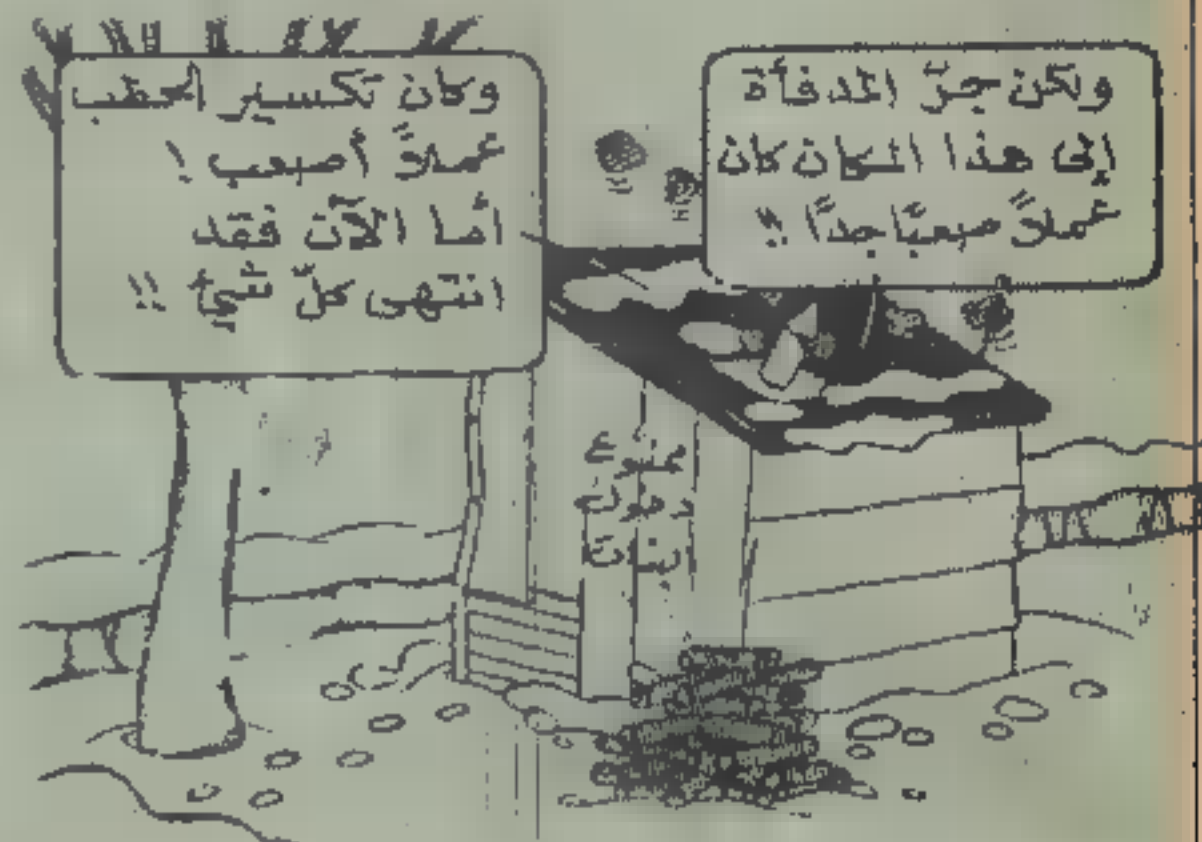 ولكن جرّ المدفأة
إلى هذا المكان كان
عملاً صعبًا جدًا !!
وكان تكسير الحطب
عملاً أصعب !
أما الآن فقد
انتهى كلّ شيء !!
ممنوع
دخول
بنات